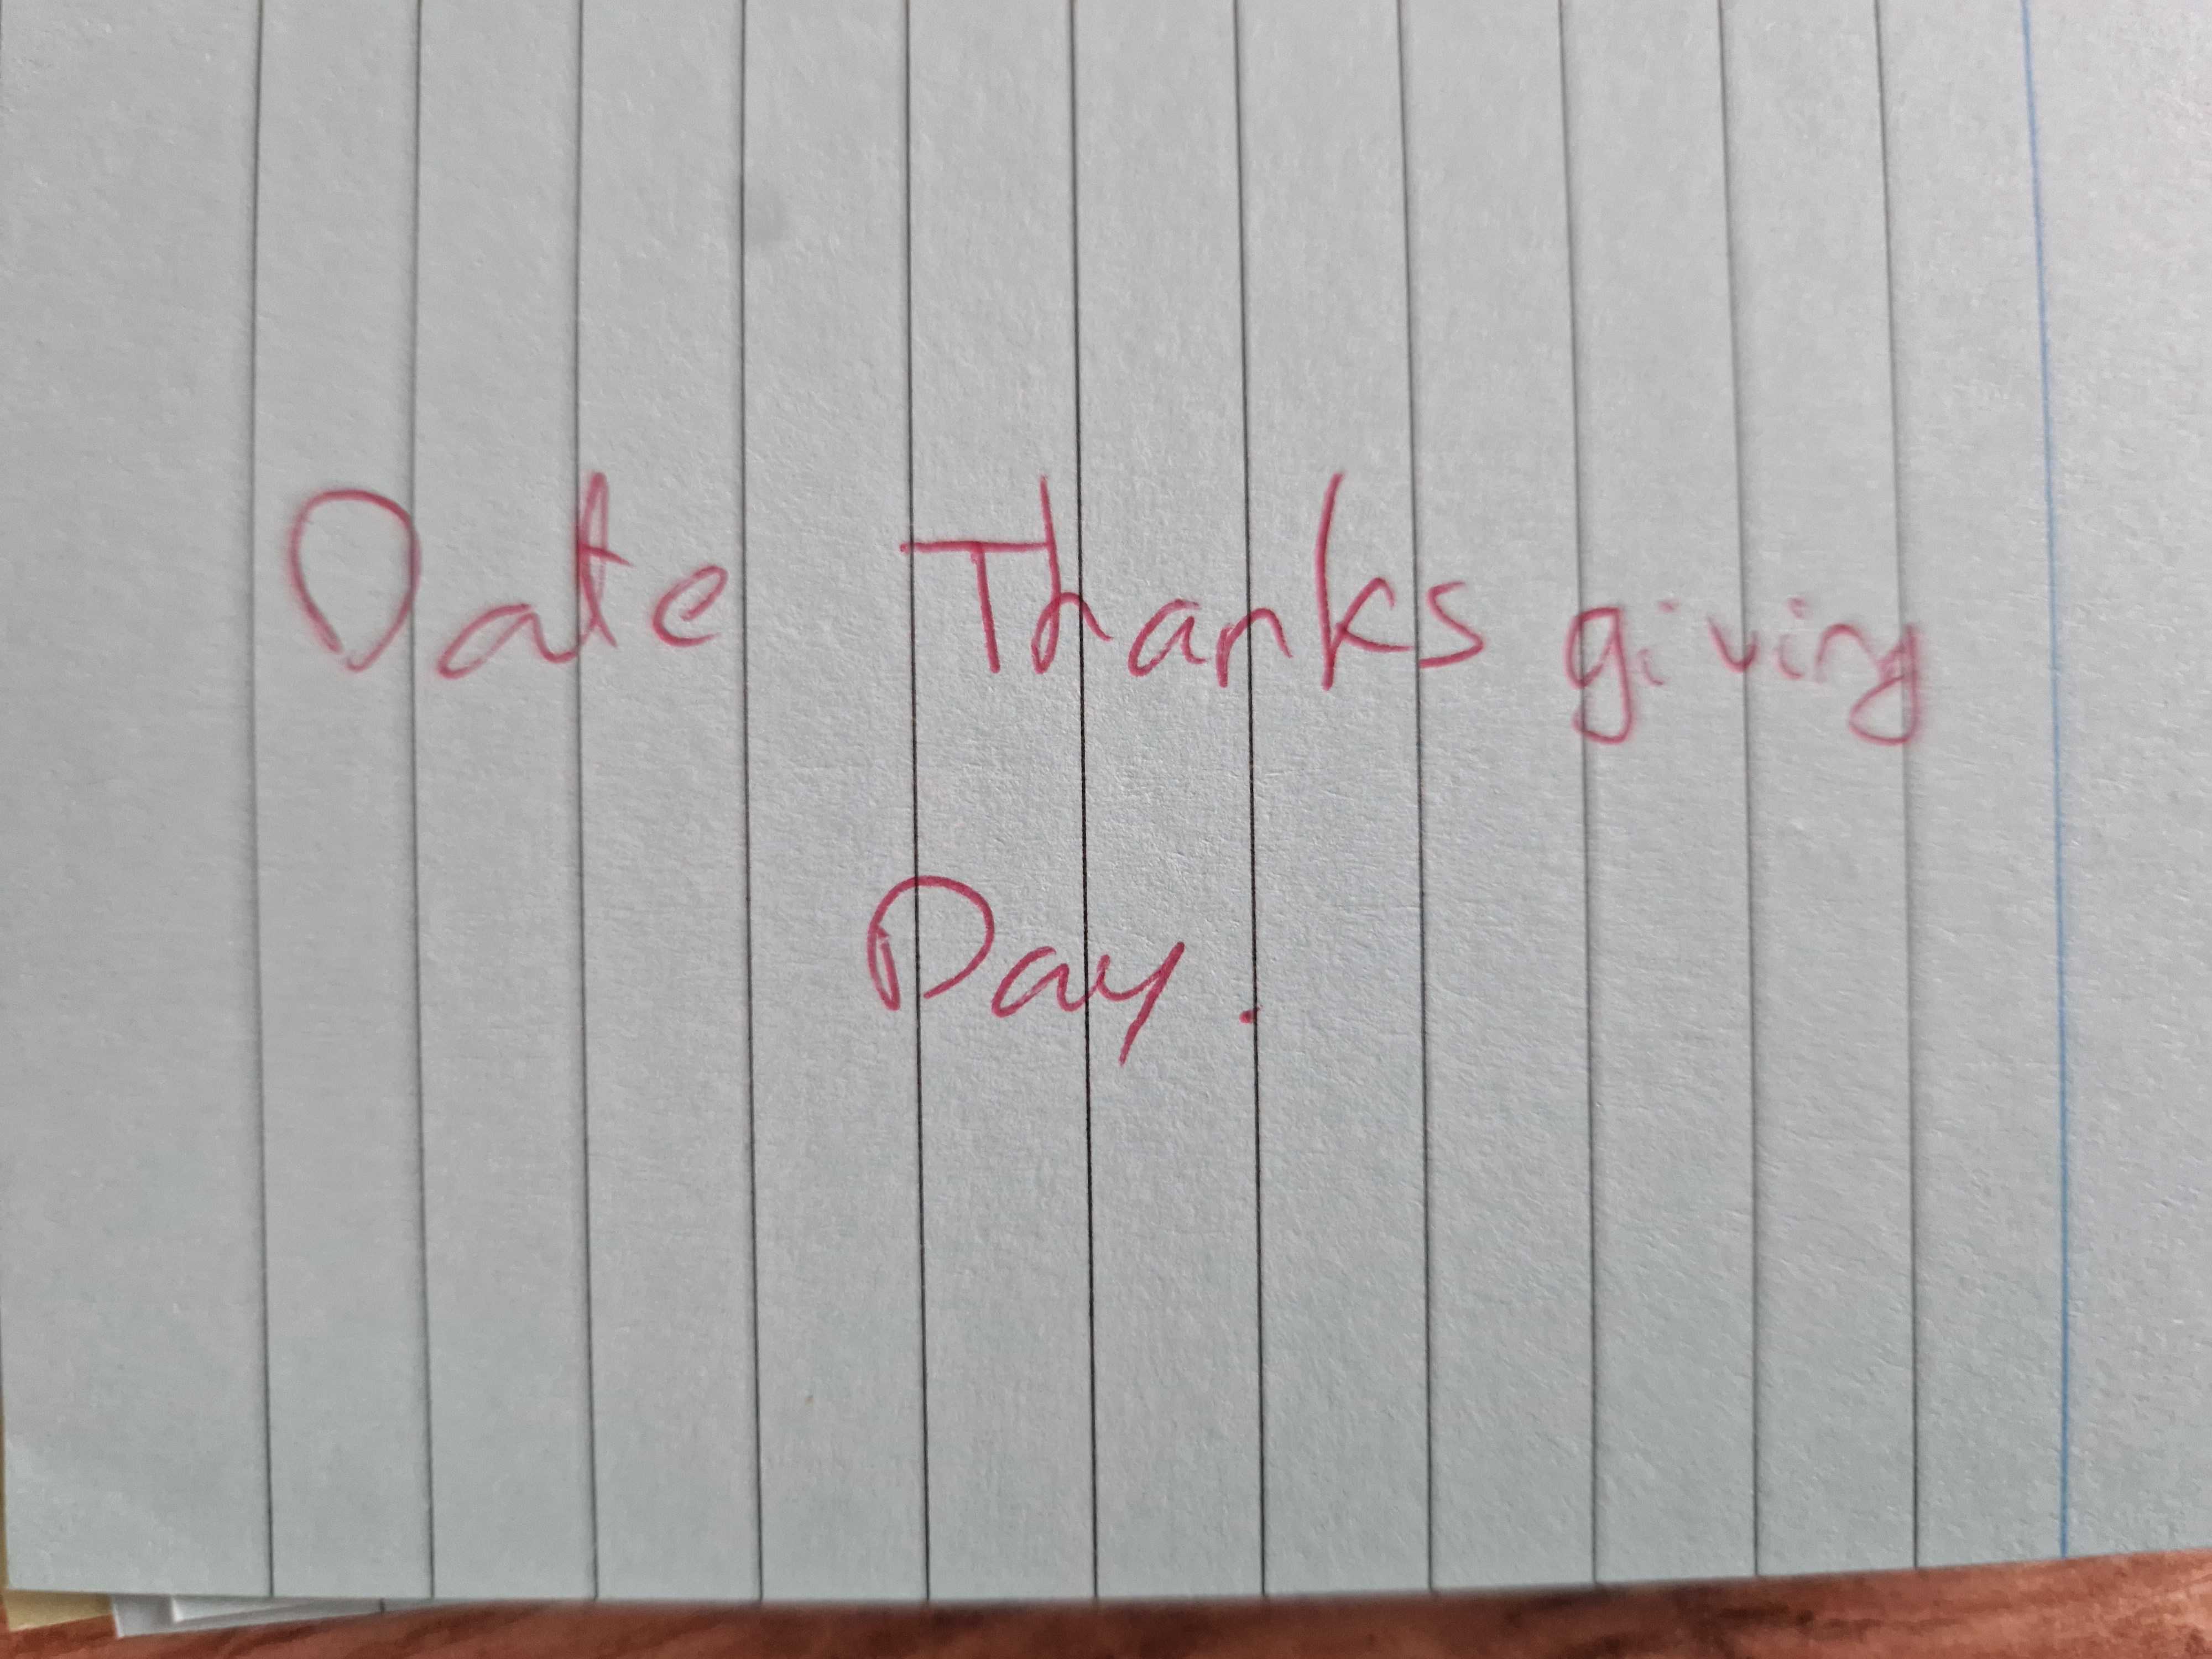 Date Thanks giving
Day.